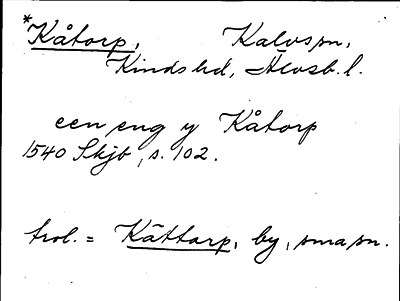 *Kåtorp, Kalvspn,
Kinds hd, Älvsb. l.
een eng y Kåtorp
1540 Skjb, s. 102.
trol. = Kättorp, by, sma sn.